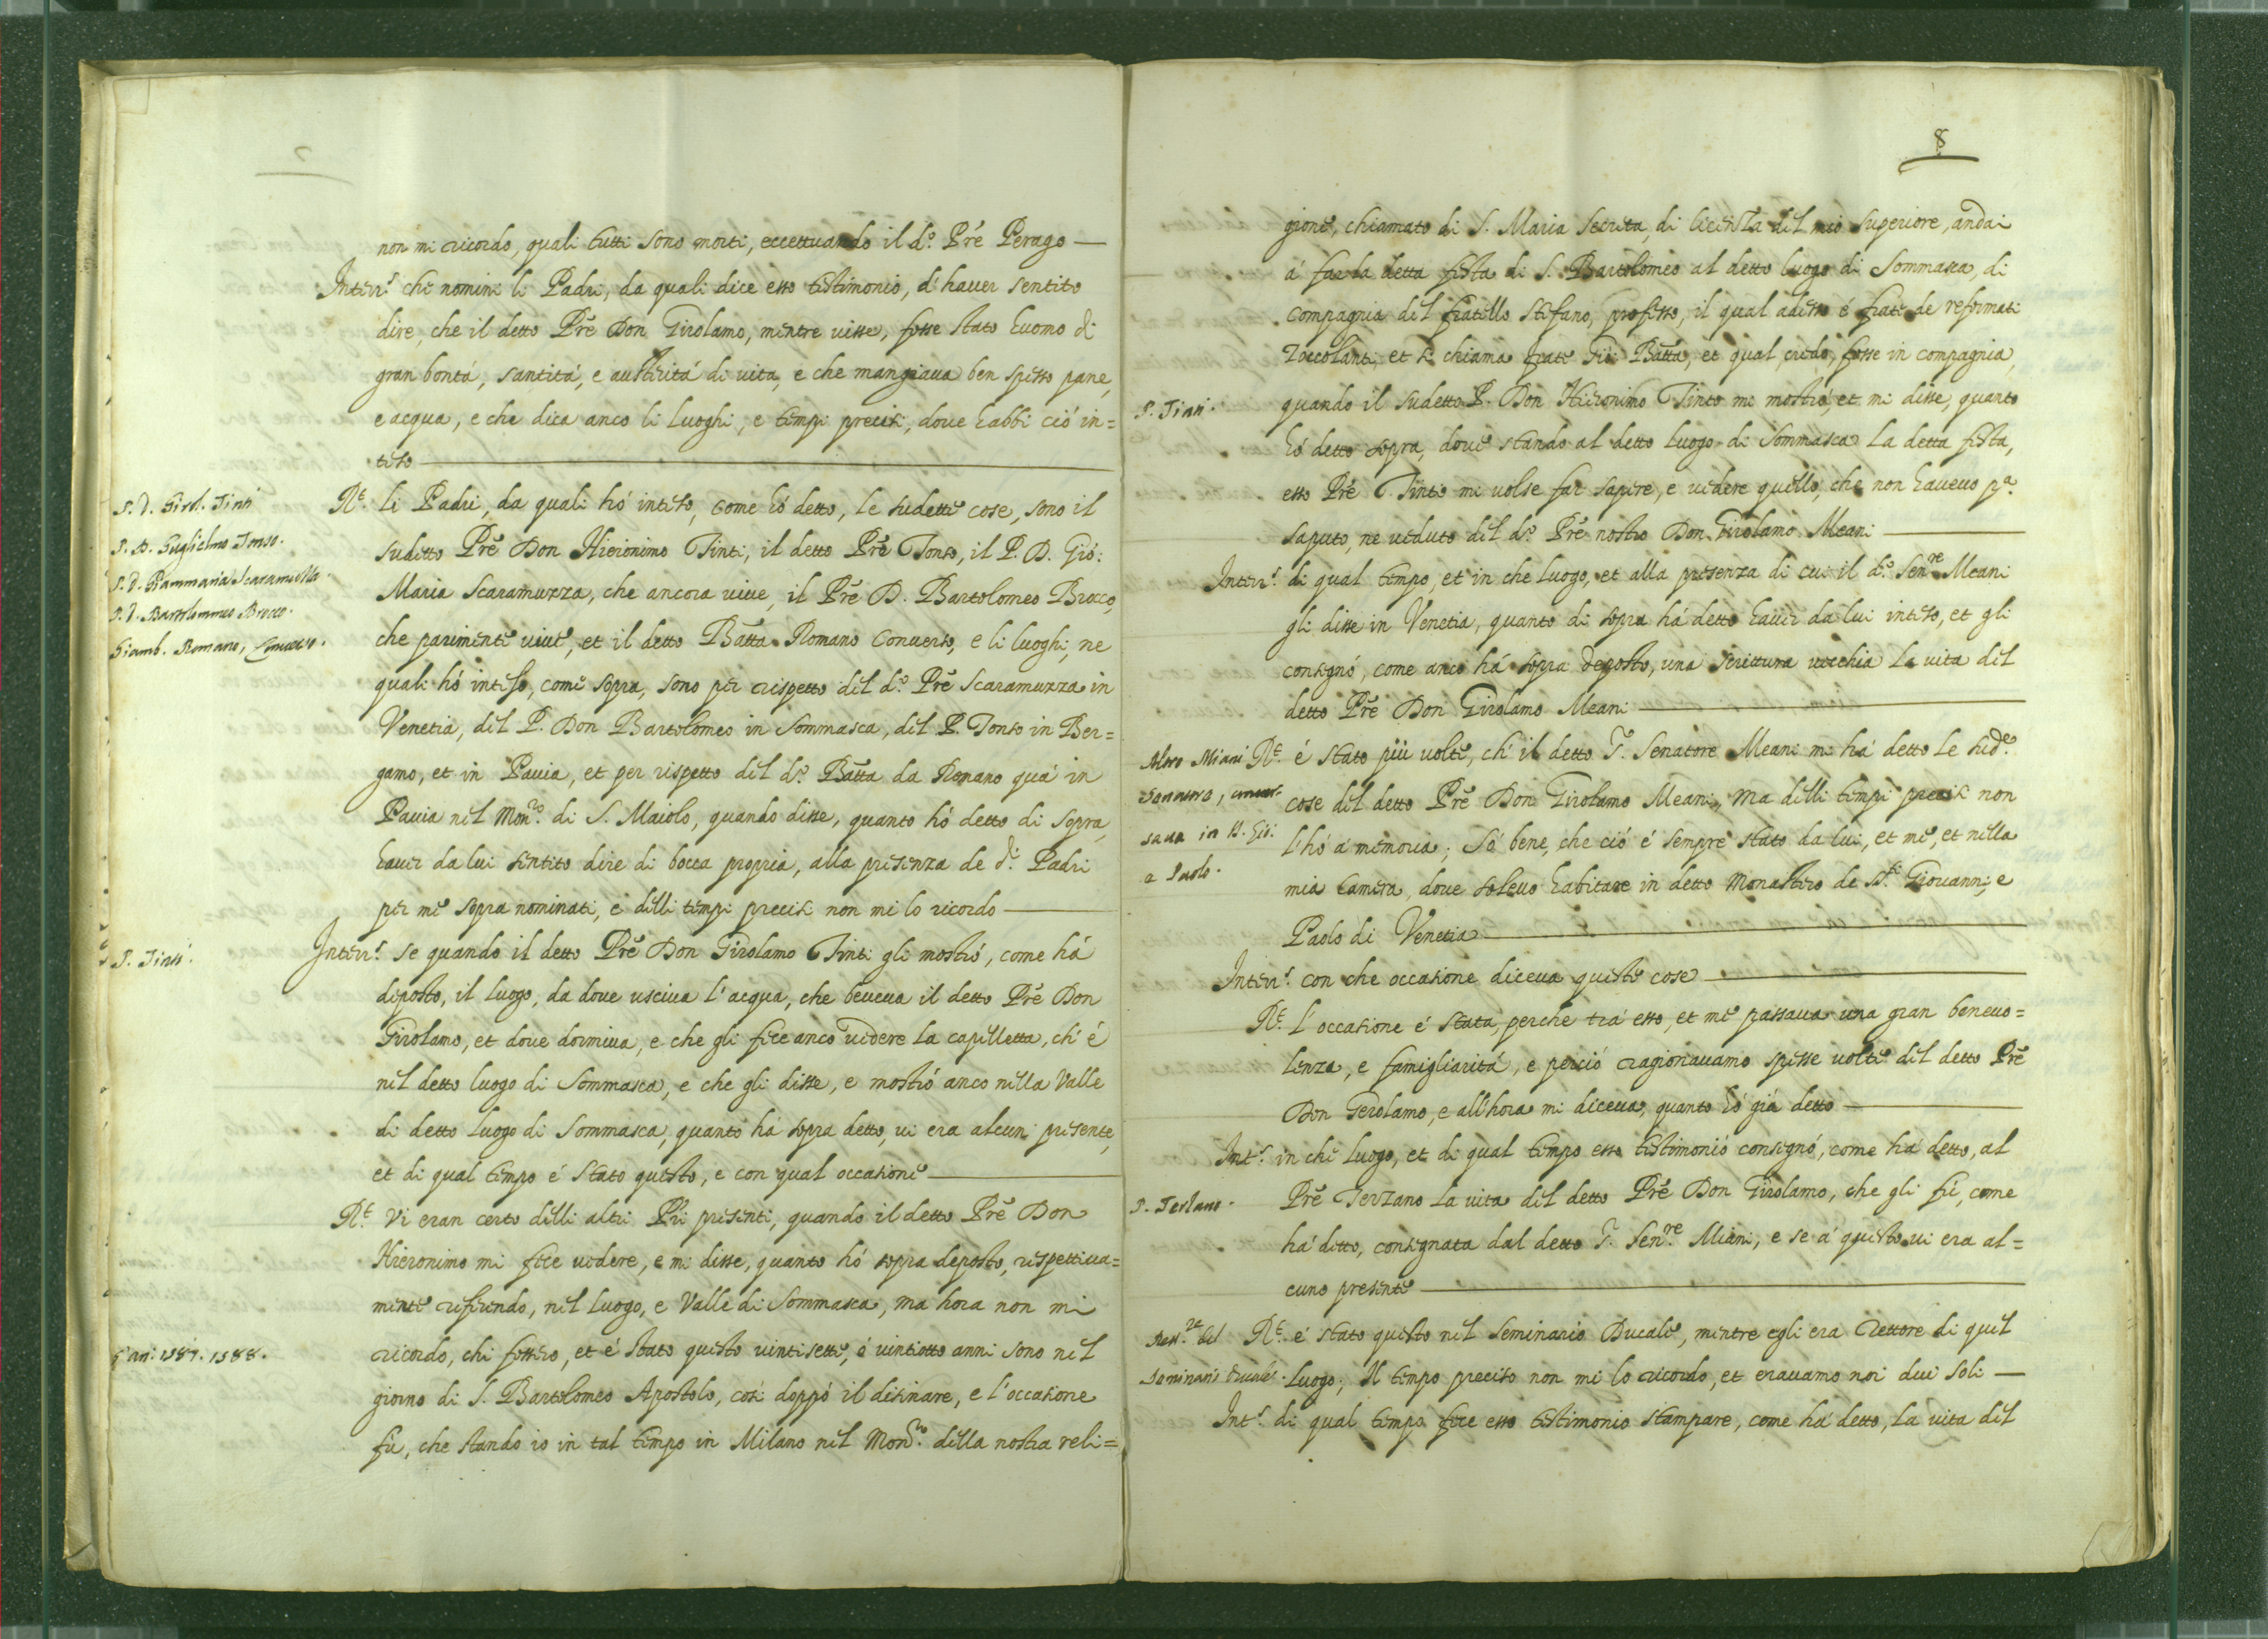 non mi ricordo, quali tutti sono morti, eccettuando il d.º Prẽ Perago —
Interr.s che nomini li Padri, da quali dice esso testimonio, d'haver sentito
dire, che il detto Prẽ Don Girolamo, mentre visse, fosse stato huomo di
gran bontá, santitá, e austeritá di vita, e che mangiava ben spesso pane,
e acqua, e che dica anco li luoghi, e tempi precisi, dove habbi ció in=
teso —
P. D. Girol. Tinti
P. D. Guglielmo Tonso.
P. D. Giammaria Scaramuzza.
P. D. Bartolommeo Brocco.
Giamb. Romano, Converso.
R.t li Padri, da quali hó inteso, come hó detto, le sudette cose, sono il
sudetto Prẽ Don Hieronimo Tinti, il detto Prẽ Tonso, il P. D. Gió:
Maria Scaramuzza, che ancora vive, il Prẽ D. Bartolomeo Brocco,
che parimente vive, et il detto Batta Romano Converso, e li luoghi, ne
quali hó inteso, come sopra, sono per rispetto del d.º Prẽ Scaramuzza in
Venetia, del P. Don Bartolomeo in Sommasca, del P. Tonso in Ber=
gamo, et in Pavia, et per rispetto del d.º Batta da Romano quá in
Pavia nel Mon.ro di S. Maiolo, quando disse, quanto hó detto di sopra,
haver da lui sentito dire di bocca propria, alla presenza de d.i Padri
per me sopra nominati, e delli tempi precisi non mi lo ricordo —
P. Tinti.
Interr.s se quando il detto Prẽ Don Girolamo Tinti gli mostró, come há
deposto, il luogo, da dove usciva l'acqua, che beveva il detto Prẽ Don
Girolamo, et dove dormiva, e che gli fece anco vedere la capelletta, ch'é
nel detto luogo di Sommasca, e che gli disse, e mostró anco nella Valle
di detto luogo di Sommasca, quanto há sopra detto, vi era alcun presente,
et di qual tempo é stato questo, e con qual occasione —
R.t Vi eran certo delli altri Pri presenti, quando il detto Prẽ Don
Hieronimo mi fece vedere, e mi disse, quanto hó sopra deposto, rispettiva=
mente riferendo, nel luogo, e Valle di Sommasca, ma hora non mi
ricordo, chi fossero, et é stato questo vintisette, ó vintiotto anni sono nel
1587. 1588.
giorno di S. Bartolomeo Apostolo, cosi doppó il desinare, e l'occasione
fu, che stando io in tal tempo in Milano nel Mon.ro della nostra reli=
8
gione, chiamato di S. Maria Secreta, di licenza del mio Superiore, andai
á far la detta festa di S. Bartolomeo al detto luogo di Sommasca, di
compagnia del fratello Stefano, professo, il qual adesso é frate de reformati
Zoccolanti, et si chiama frate Gio: Batta, et qual, credo, fosse in compagnia,
P. Tinti.
quando il sudetto P. Don Hieronimo Tinto mi mostró, et mi disse, quanto
hó detto sopra, dove stando al detto luogo di Sommasca la detta festa,
esso Prẽ Tinto mi volse far sapere, e vedere quello, che non havevo p.a
saputo, ne veduto del d.º Prẽ nostro Don Girolamo Meani —
Interr.s di qual tempo, et in che luogo, et alla presenza di cui il d.º Sen.re Meani
gli disse in Venetia, quanto di sopra há detto haver da lui inteso, et gli
consegnó, come anco há sopra deposto, una scrittura vecchia la vita del
detto Prẽ Don Girolamo Meani —
Alvro Miani
Senatore, conver-
sava in SS. Gio:
e Paolo.
R.t é stato piú volte, ch'il detto S.r Senatore Meani mi há detto le sud.e
cose del detto Prẽ Don Girolamo Meani, ma delli tempi precisi non
l'hó á memoria; Só bene, che ció é sempre stato da lui, et me, et nella
mia Camera, dove solevo habitare in detto Monastero de SS.ti Giovanni, e
Paolo di Venetia —
Interr.s con che occasione diceva queste cose —
R.t l'occasione é stata, perche trá esso, et me passava una gran benevo=
lenza, e famigliaritá, e perció ragionavamo spesse volte del detto Prẽ
Don Gerolamo, e all'hora mi diceva, quanto hó giá detto —
Int.s in che luogo, et di qual tempo esso testimonio consegnó, come há detto, al
P. Terzano.
Prẽ Terzano la vita del detto Prẽ Don Girolamo, che gli fú, come
há detto, consegnata dal detto S.r Sen.re Miani, e se á questo vi era al=
cuno presente —
Rett.re del
Seminario Ducale.
R.t é stato questo nel Seminario Ducale, mentre egli era Rettore di quel
luogo; Il tempo preciso non mi lo ricordo, et eravamo noi dui soli —
Int.s di qual tempo fece esso testimonio stampare, come há detto, la vita del